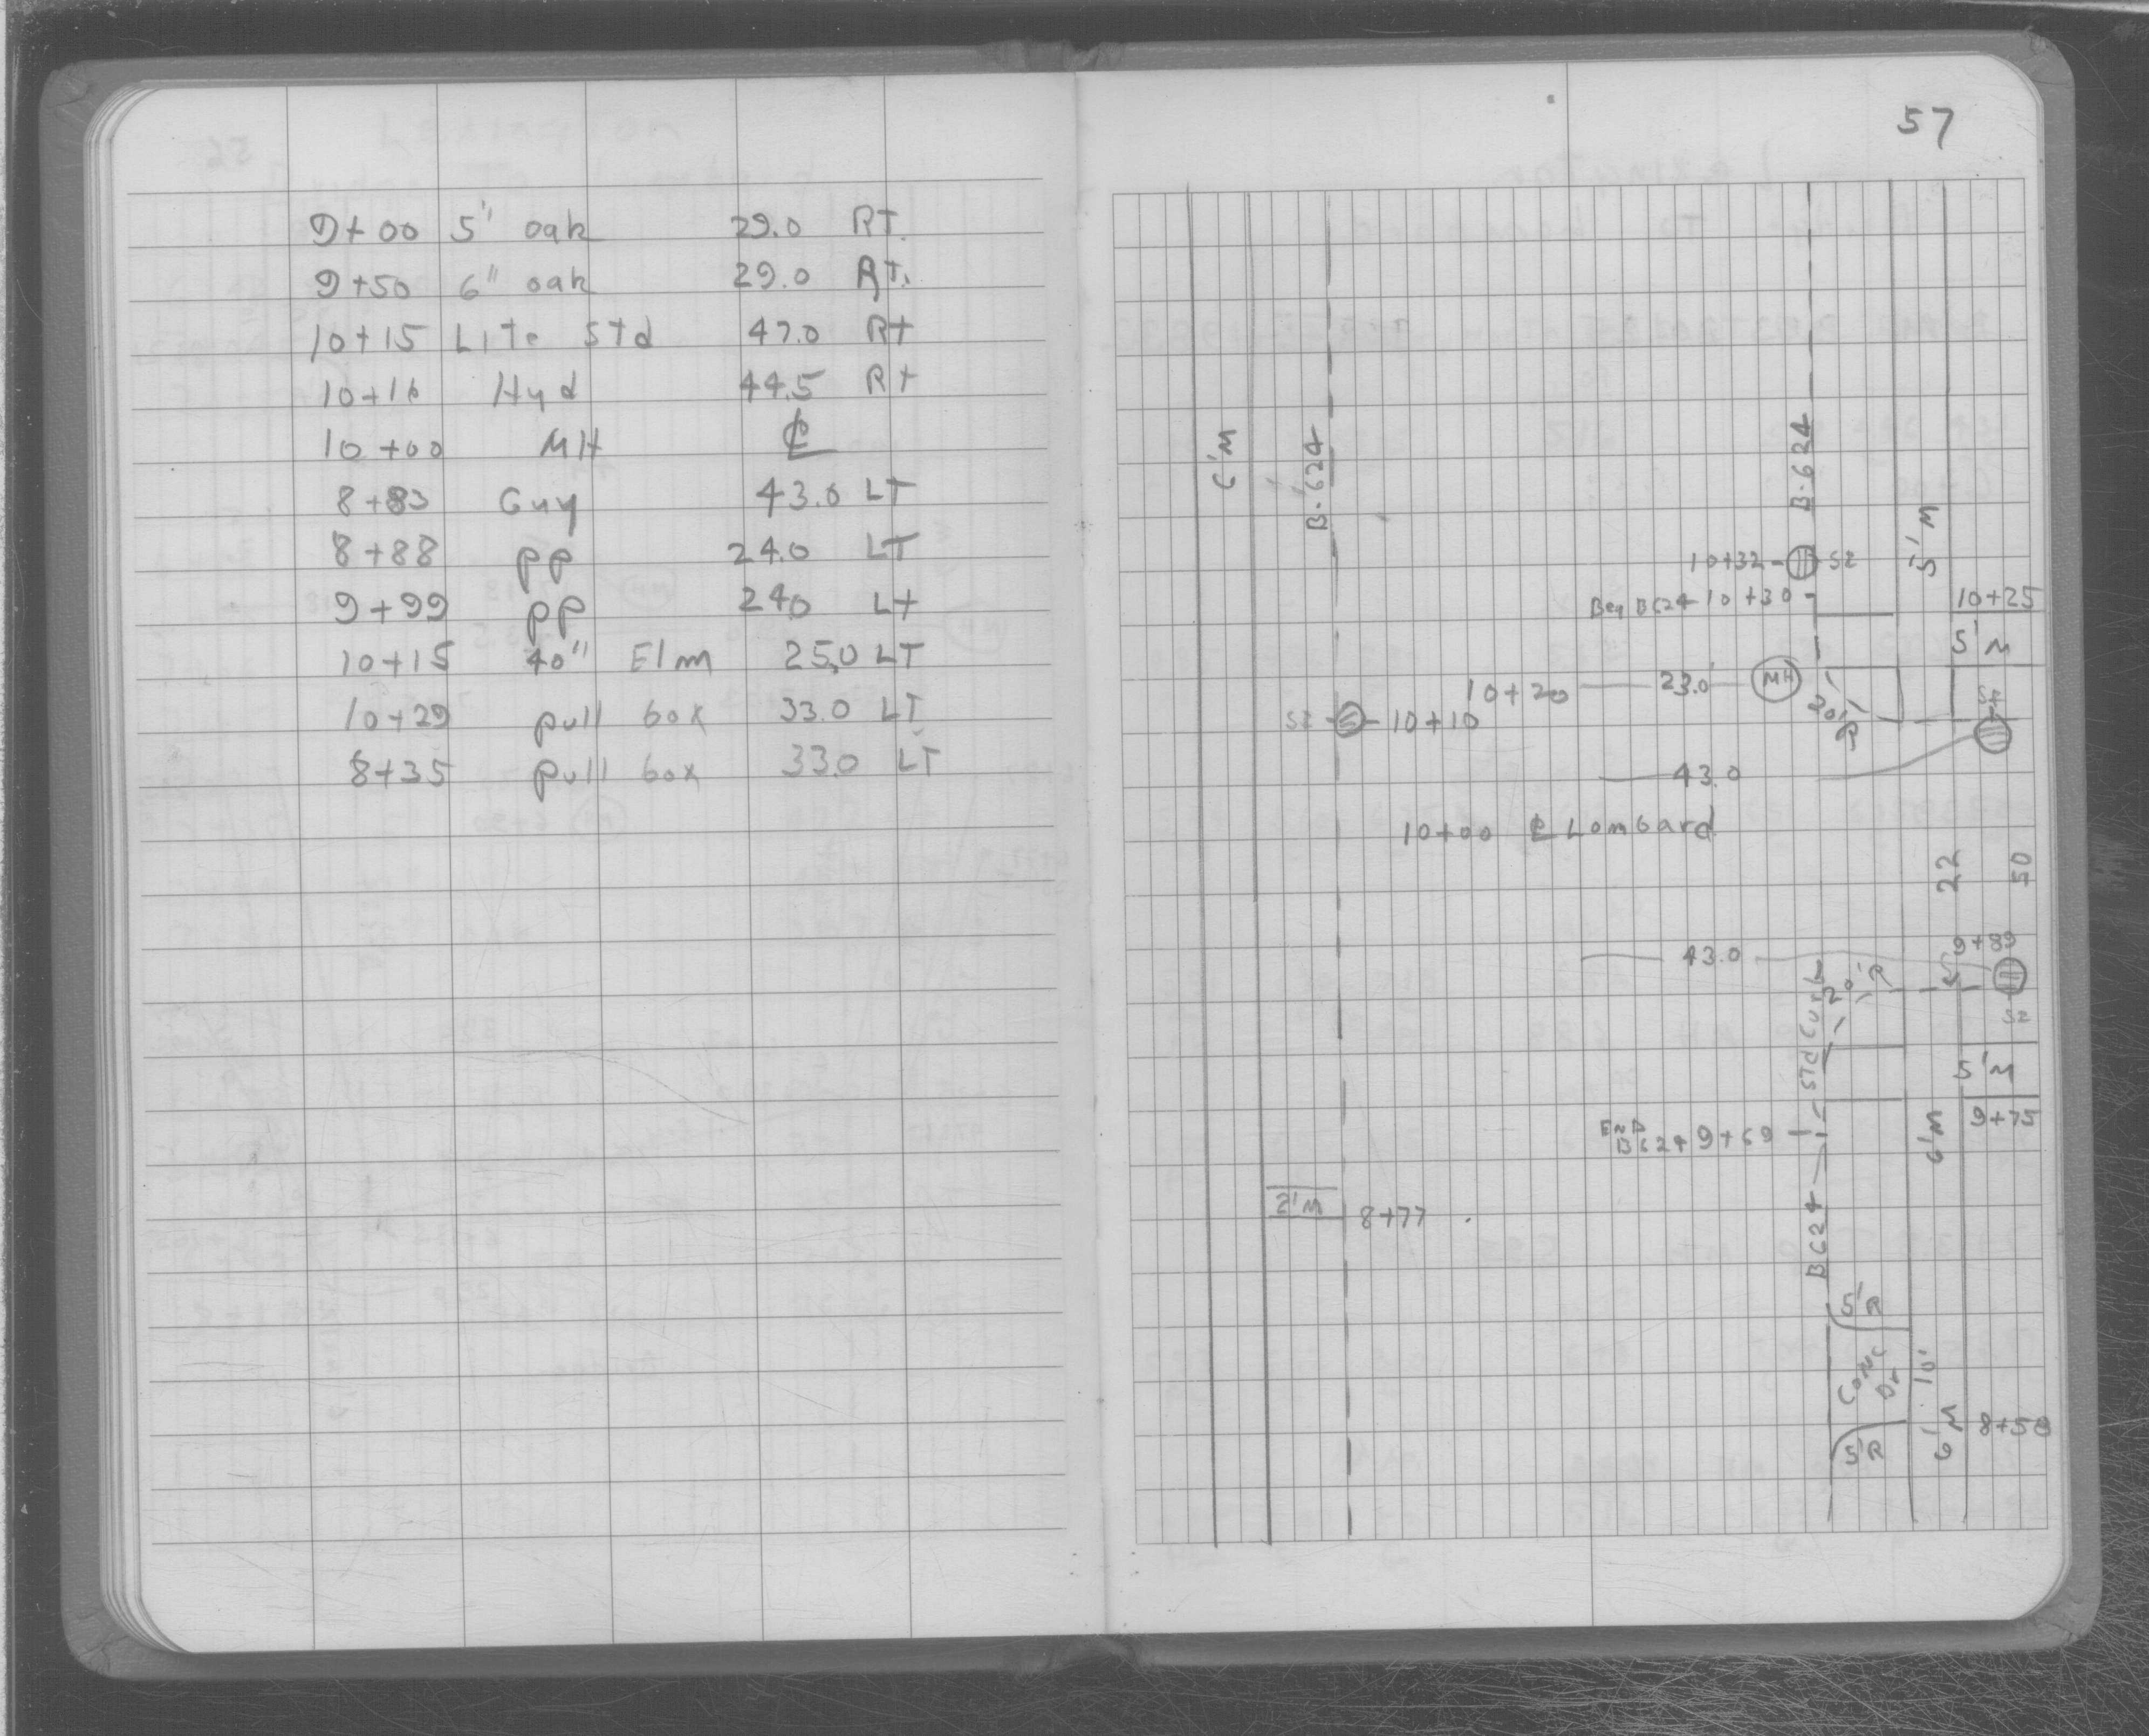 9+00 5" oak 29.0 RT.
9+50 6" oak 29.0 RT.
10+15 Lite Std 47.0 Rt
10+16 Hyd 44.5 Rt
10+00 MH ℄
8+83 Guy 43.0 LT
8+88 PP 24.0 LT
9+99 PP 24.0 Lt
10+15 40" Elm 25.0 LT
10+29 pull box 33.0 LT
8+35 pull box 33.0 LT
57
6'M
B-624
B-624
5'M
10+32 SZ
Beg B624 10+30
10+25
5'M
10+20 23.0 MH
20'R
SZ
SZ S 10+10
43.0
10+00 ℄ Lombard
22
50
43.0
9+89
20'R
Std Curb
SZ
5'M
9+75
END
B624 9+69
6'M
2'M 8+77
B624
5'R
Conc
Dr
10'
5'R
6'M
8+50